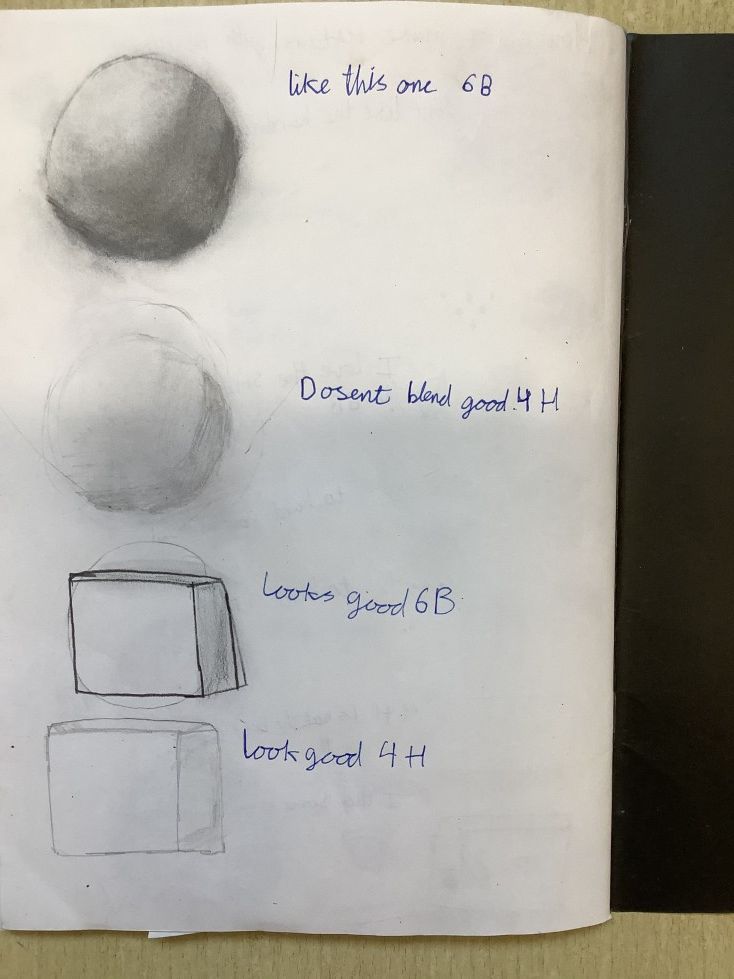 like this one 6B
Dosent blend good. 4H
Looks good 6B
Look good 4H